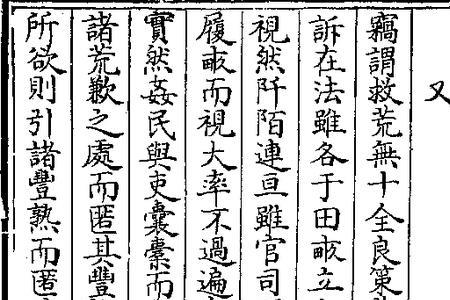 又
竊謂救荒無十全良策
訴在法雖各于田畝立
視然阡陌連亘雖官司
履畝而視大率不過遍
實然姦民與吏囊橐而
諸荒歉之處而匿其豐
所欲則引諸豐熟而匿